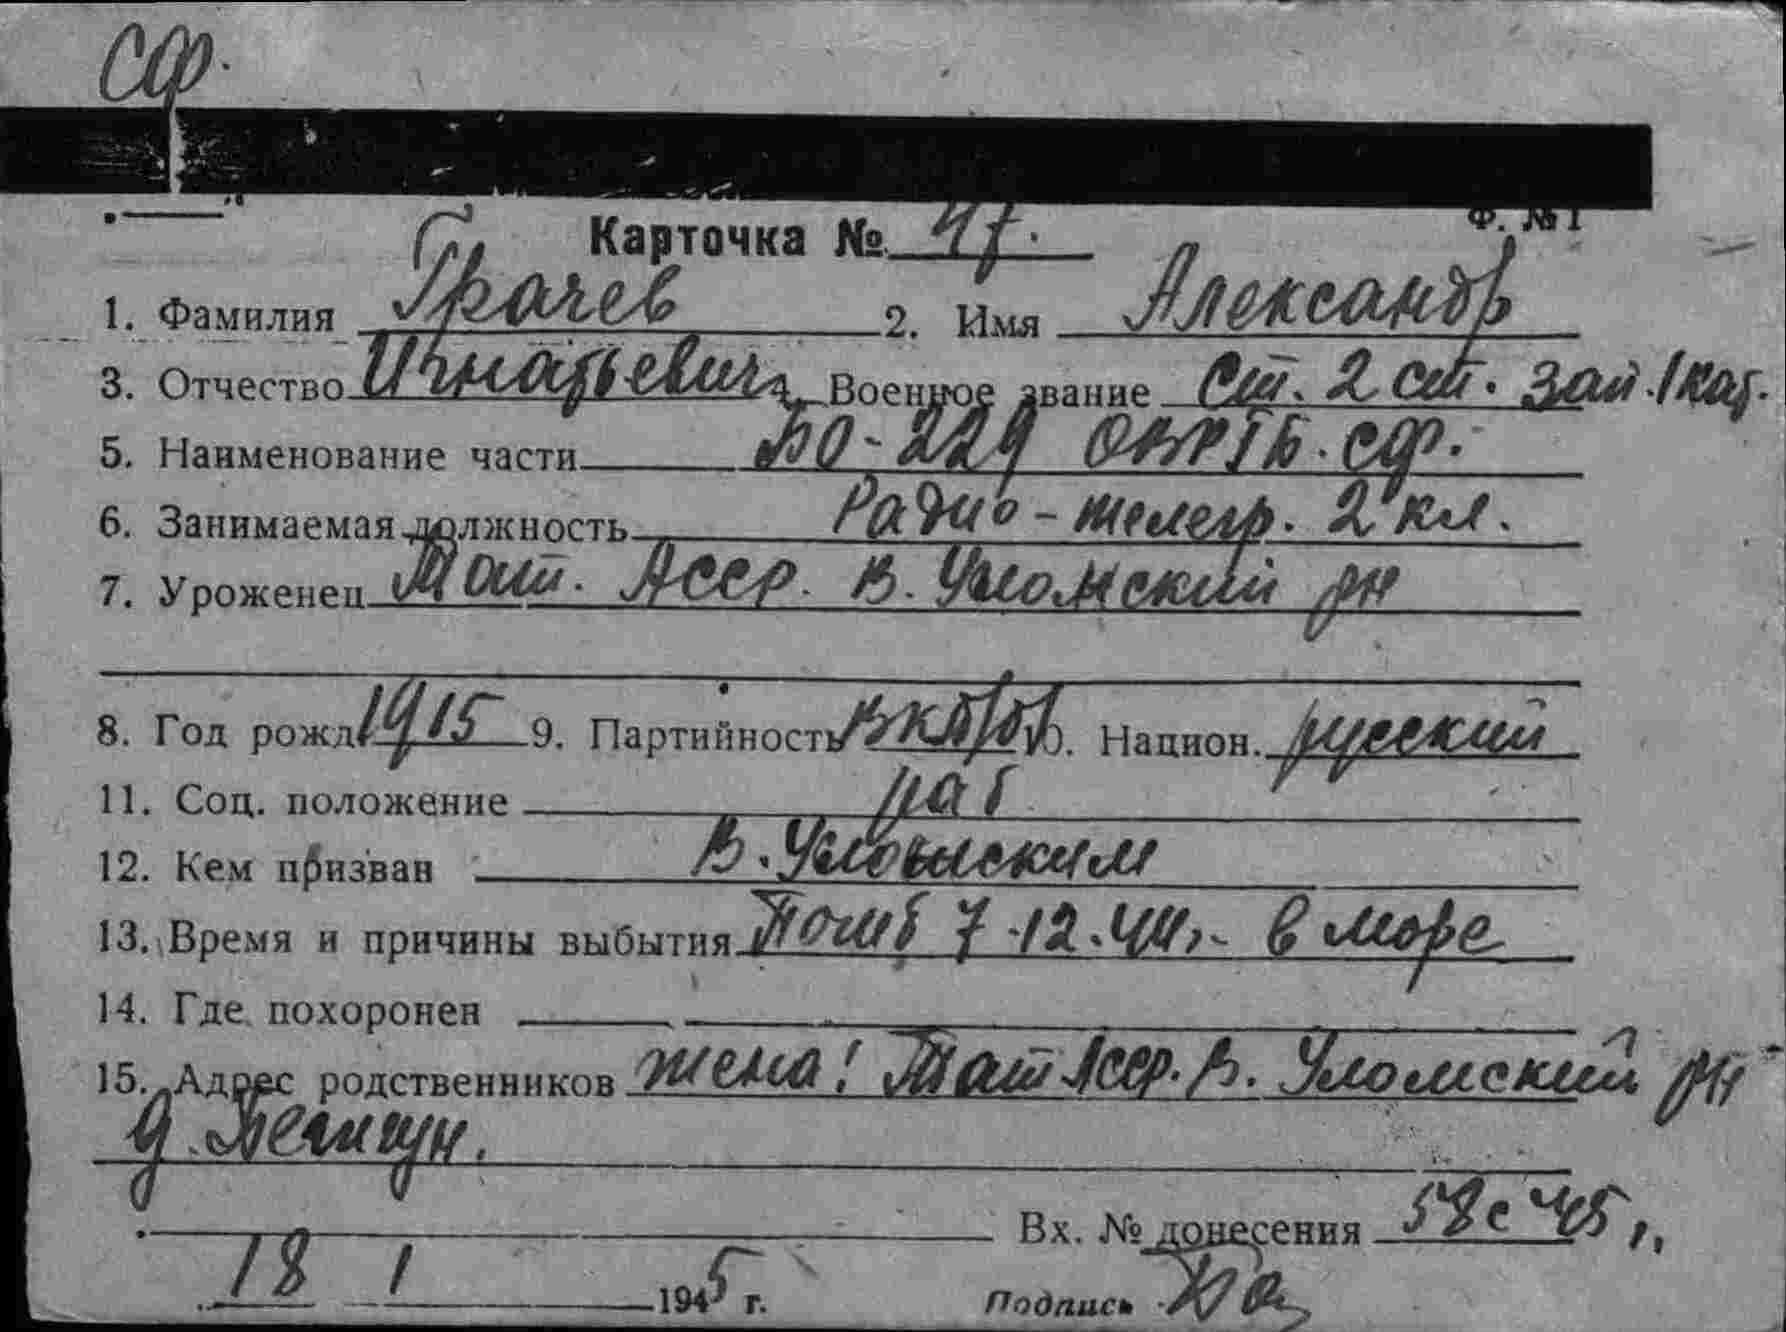 СФ.
Ф. № 1
Карточка № 47.
1. Фамилия Грачев 2. Имя Александр
3. Отчество Игнатьевич 4. Военное звание Ст. 2 ст. Зап. 1 кат.
5. Наименование части БО-229 ОВР ГБ. СФ.
6. Занимаемая должность Радио-телегр. 2 кл.
7. Уроженец Тат. Асср. В. Услонский рн
8. Год рожд. 1915 9. Партийность ВКП/б/ 10. Национ. русский
11. Соц. положение раб
12. Кем призван В.
13. Время и причины выбытия Погиб 7.12.44г. в море
14. Где похоронен
15. Адрес родственников жена: Тат Асср. В. Уломский рн
д.
Вх. № донесения 58с 45 г.
18 1 1945 г. Подпись